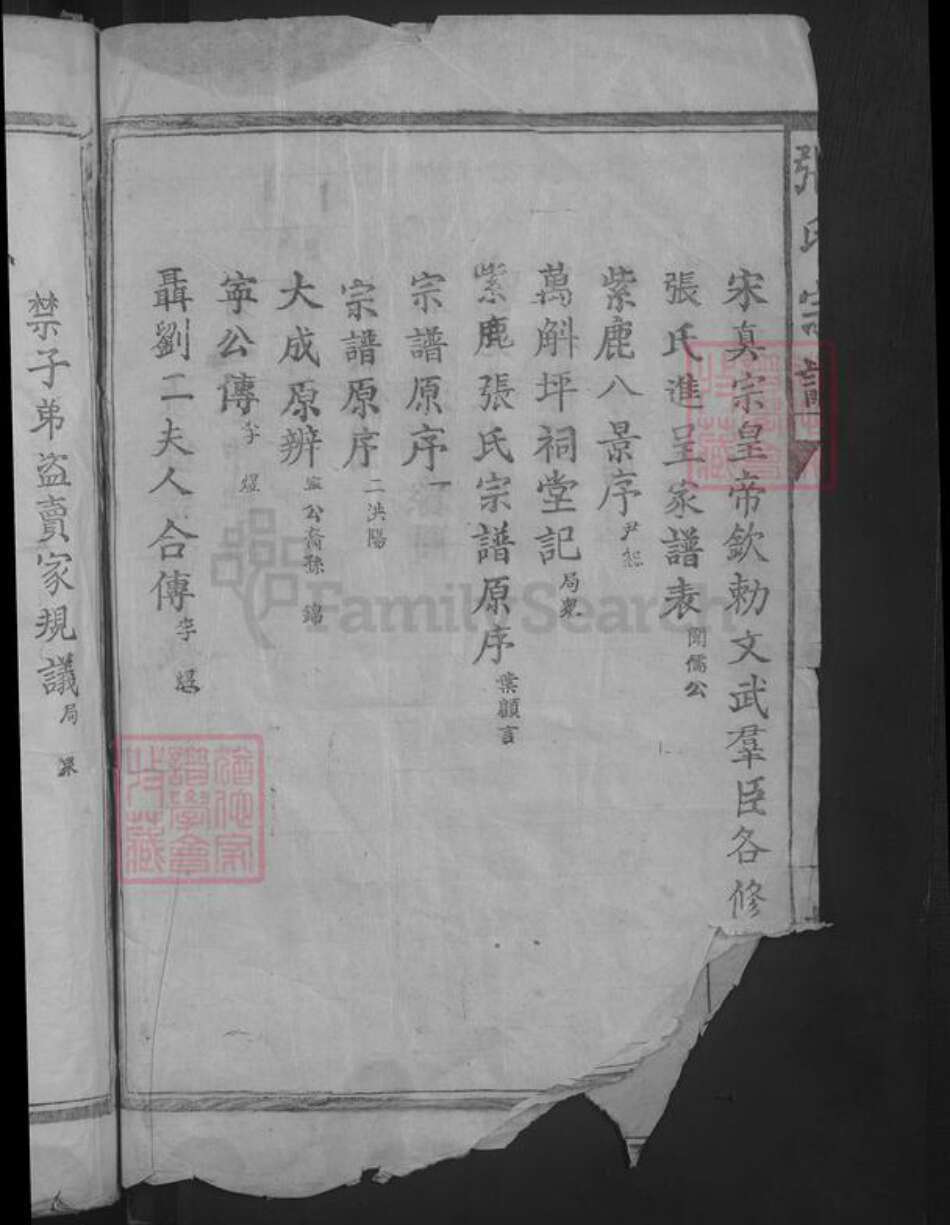 張氏宗譜
宋真宗皇帝欽勅文武羣臣各修
張氏進呈家譜表 閣儒公
紫鹿八景序 尹
萬斛坪祠堂記 局衆
紫鹿張氏宗譜原序 葉顧言
宗譜原序一
宗譜原序 二洪陽
大成原辨 寧公裔孫 錦
寧公傳 李煜
聶劉二夫人合傳 李煜
禁子弟盜賣家規議 局衆
FamilySearch